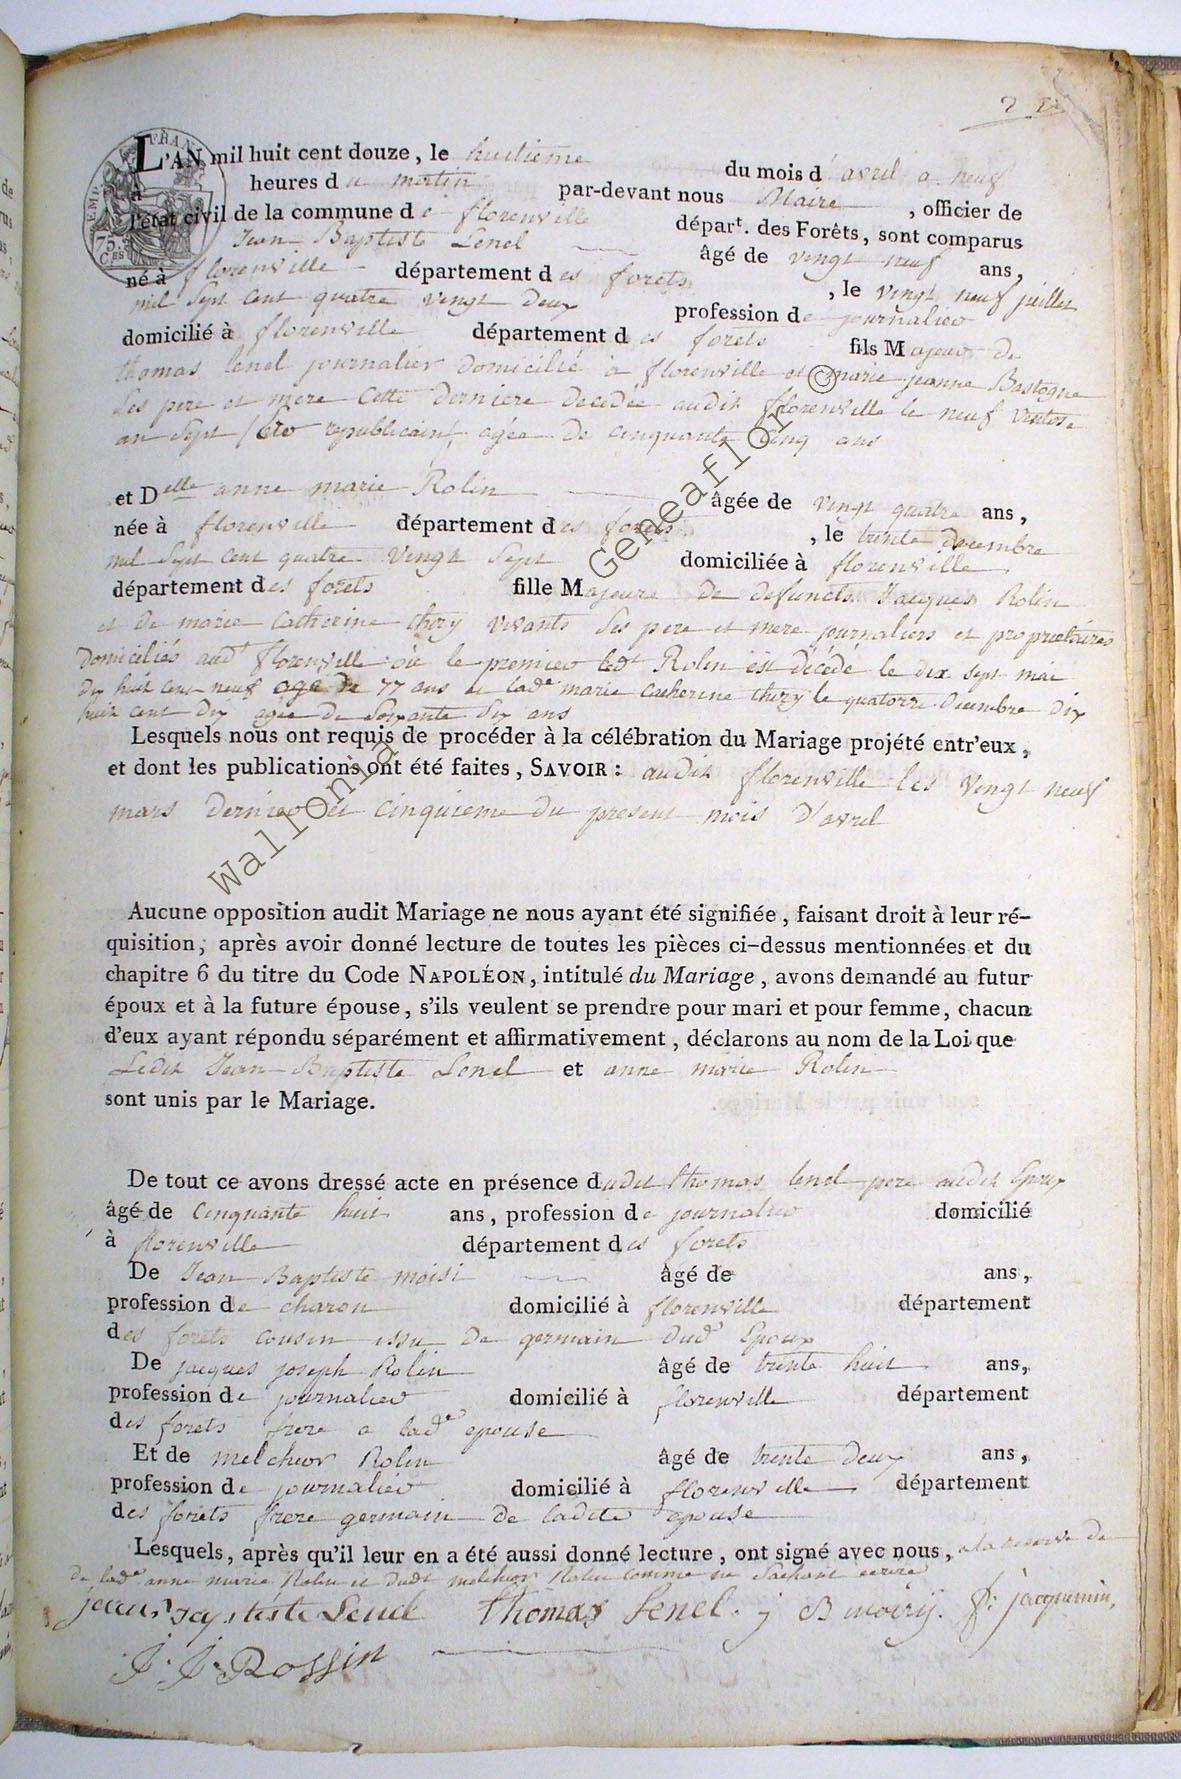 L'AN mil huit cent douze, le huitieme du mois d'avril a neuf
à heures du matin par-devant nous Maire, officier de
l'état civil de la commune de florenville départ. des Forêts, sont comparus
Jean Baptiste Lenel âgé de vingt neuf ans,
né à florenville département des forets, le vingt neuf juillet
mil sept cent quatre vingt deux profession de journalier
domicilié à florenville département des forets fils Majeur de
thomas lenel journalier domicilié à florenville et marie jeanne Bastogne
Ses pere et mere cette derniere decedée audit florenville le neuf ventose
an Sept republicain, agée de cinquante cinq ans
et Delle anne marie Rolin âgée de vingt quatre ans,
née à florenville département des forets, le trente decembre
mil sept cent quatre Vingt Sept domiciliée à florenville
département des forets fille Majeure de defuncts Jacques Rolin
et de marie Catherine thiry vivants Ses pere et mere journaliers et proprietaires
domiciliés audt florenville où le premier ledt Rolin est décédé le dix sept mai
dix huit cent neuf age de 77 ans et lade marie catherine thiry le quatorze Decembre dix
huit cent dix agée de Soixante dix ans
Lesquels nous ont requis de procéder à la célébration du Mariage projété entr'eux,
et dont les publications ont été faites, SAVOIR: audit florenville les Vingt neuf
mars dernier et cinquieme du present mois d'avril
Aucune opposition audit Mariage ne nous ayant été signifiée, faisant droit à leur ré-
quisition, après avoir donné lecture de toutes les pièces ci-dessus mentionnées et du
chapitre 6 du titre du Code NAPOLÉON, intitulé du Mariage, avons demandé au futur
époux et à la future épouse, s'ils veulent se prendre pour mari et pour femme, chacun
d'eux ayant répondu séparément et affirmativement, déclarons au nom de la Loi que
Ledit Jean Baptiste Lenel et anne marie Rolin
sont unis par le Mariage.
De tout ce avons dressé acte en présence dudit thomas lenel pere audit Epoux
âgé de Cinquante huit ans, profession de journalier domicilié
à florenville département des forets
De Jean Baptiste moisi âgé de ans,
profession de charon domicilié à florenville département
des forets cousin issu de germain dudt Epoux
De jacques joseph Rolin âgé de trente huit ans,
profession de journalier domicilié à florenville département
des forets frere a lade epouse
Et de melchior Rolin âgé de trente deux ans,
profession de journalier domicilié à florenville département
des forets frere germain de ladite epouse
Lesquels, après qu'il leur en a été aussi donné lecture, ont signé avec nous, a la reserve de
de lade anne marie Rolin et dudt melchior Rolin comme ne Sachant ecrire
jean Baptiste Lenel thomas Lenel. j B moizy. jacquemin,
J. J. Rossin
EMP. FRAN
75. Ces
Wallonia © Geneaflor